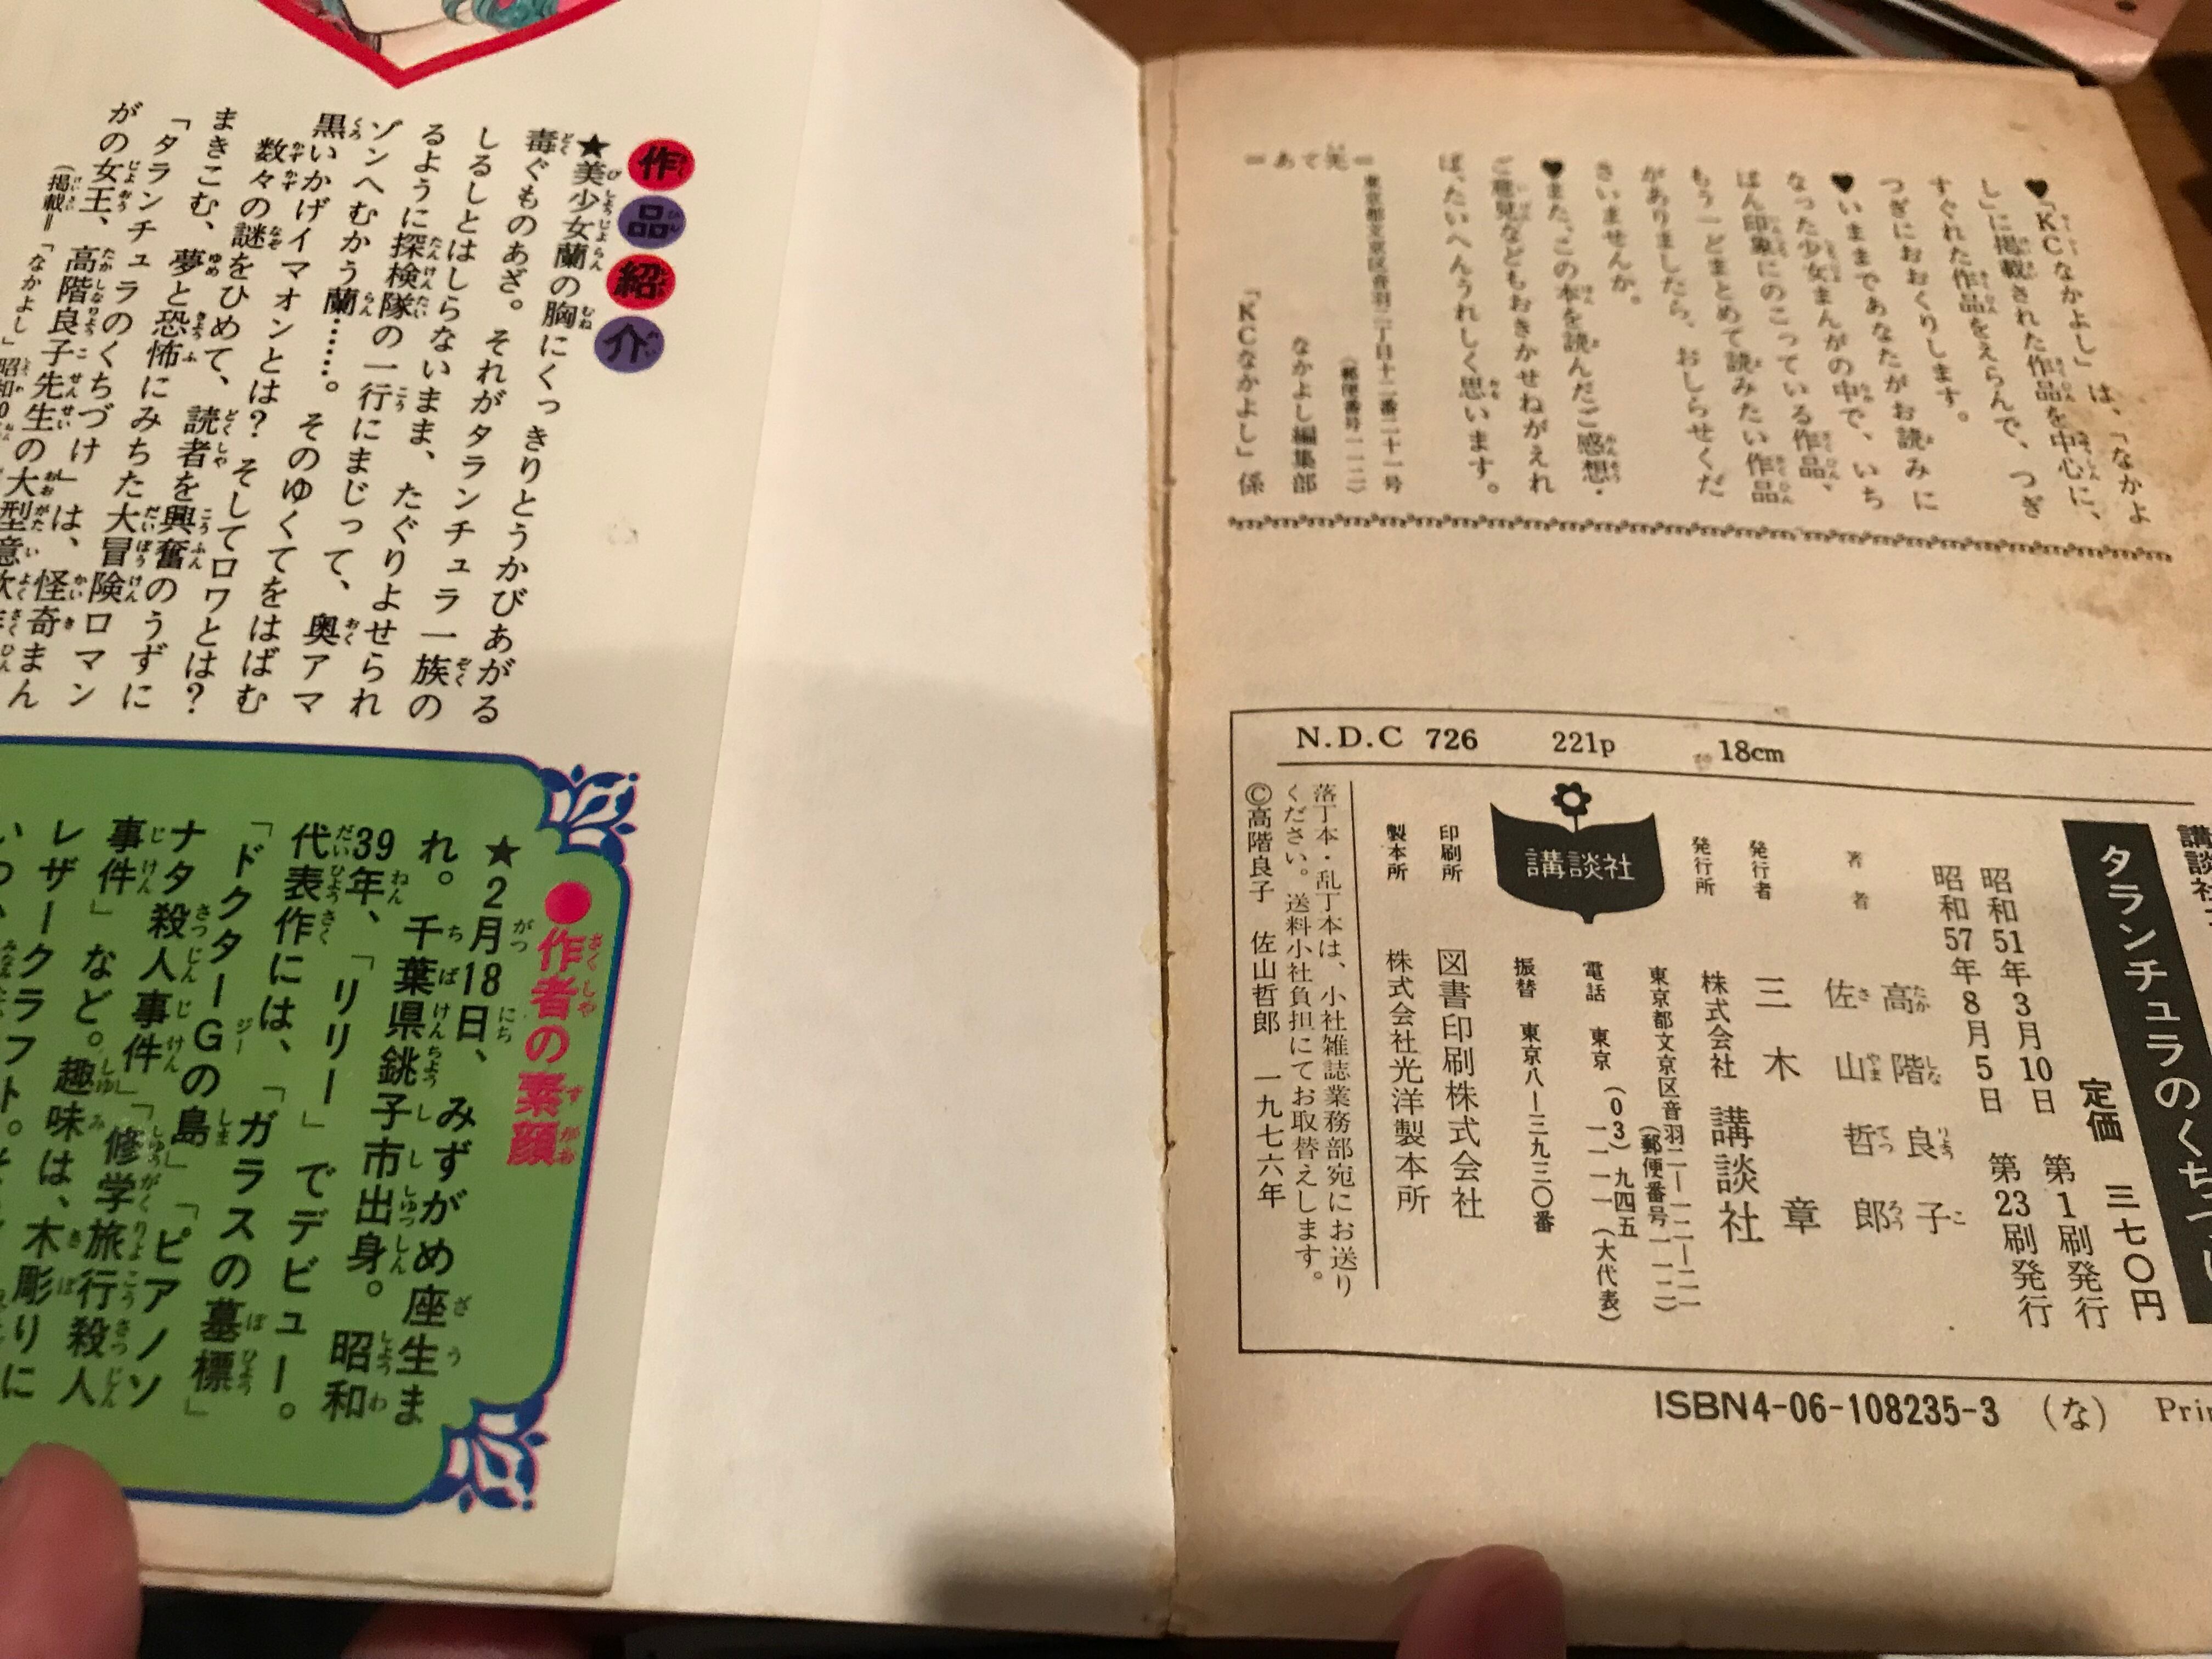 作品紹介
★美少女蘭の胸にくっきりとうかびあがる
毒ぐものあざ。それがタランチュラ一族の
しるしとはしらないまま、たぐりよせられ
るように探検隊の一行にまじって、奥アマ
ゾンへむかう蘭……。そのゆくてをはばむ
黒いかげイマオンとは？そしてロワとは？
数々の謎をひめて、読者を興奮のうずに
まきこむ、夢と恐怖にみちた大冒険ロマン
「タランチュラのくちづけ」は、怪奇まん
がの女王、高階良子先生の大型意欲
(掲載＝「なかよし」昭和
●作者の素顔
★2月18日、みずがめ座生ま
れ。千葉県銚子市出身。昭和
39年、「リリー」でデビュー。
代表作には、「ガラスの墓標」
「ドクターGの島」「ピアノソ
ナタ殺人事件」「修学旅行殺人
事件」など。趣味は、木彫りに
レザークラフト。
♥「KCなかよし」は、「なかよ
し」に掲載された作品を中心に、
すぐれた作品をえらんで、つぎ
つぎにおおくりします。
♥いままであなたがお読みに
なった少女まんがの中で、いち
ばん印象にのこっている作品、
もう一どまとめて読みたい作品
がありましたら、おしらせくだ
さいませんか。
♥また、この本を読んだご感想・
ご意見などもおきかせねがえれ
ば、たいへんうれしく思います。
＝あて先＝
東京都文京区音羽二丁目十二番二十一号
(郵便番号一一二)
なかよし編集部
「KCなかよし」係
N.D.C 726 221p 18cm
タランチュラのくちづけ
定価 三七〇円
昭和51年3月10日 第1刷発行
昭和57年8月5日 第23刷発行
著者 高階良子
佐山哲郎
発行者 三木章
発行所 株式会社 講談社
東京都文京区音羽二―一二―二一
(郵便番号一一二)
電話 東京 (03) 九四五
一一一一 (大代表)
振替 東京八―三九三〇番
講談社
印刷所 図書印刷株式会社
製本所 株式会社光洋製本所
落丁本・乱丁本は、小社雑誌業務部宛にお送り
ください。送料小社負担にてお取替えします。
©高階良子 佐山哲郎 一九七六年
ISBN4-06-108235-3 (な)